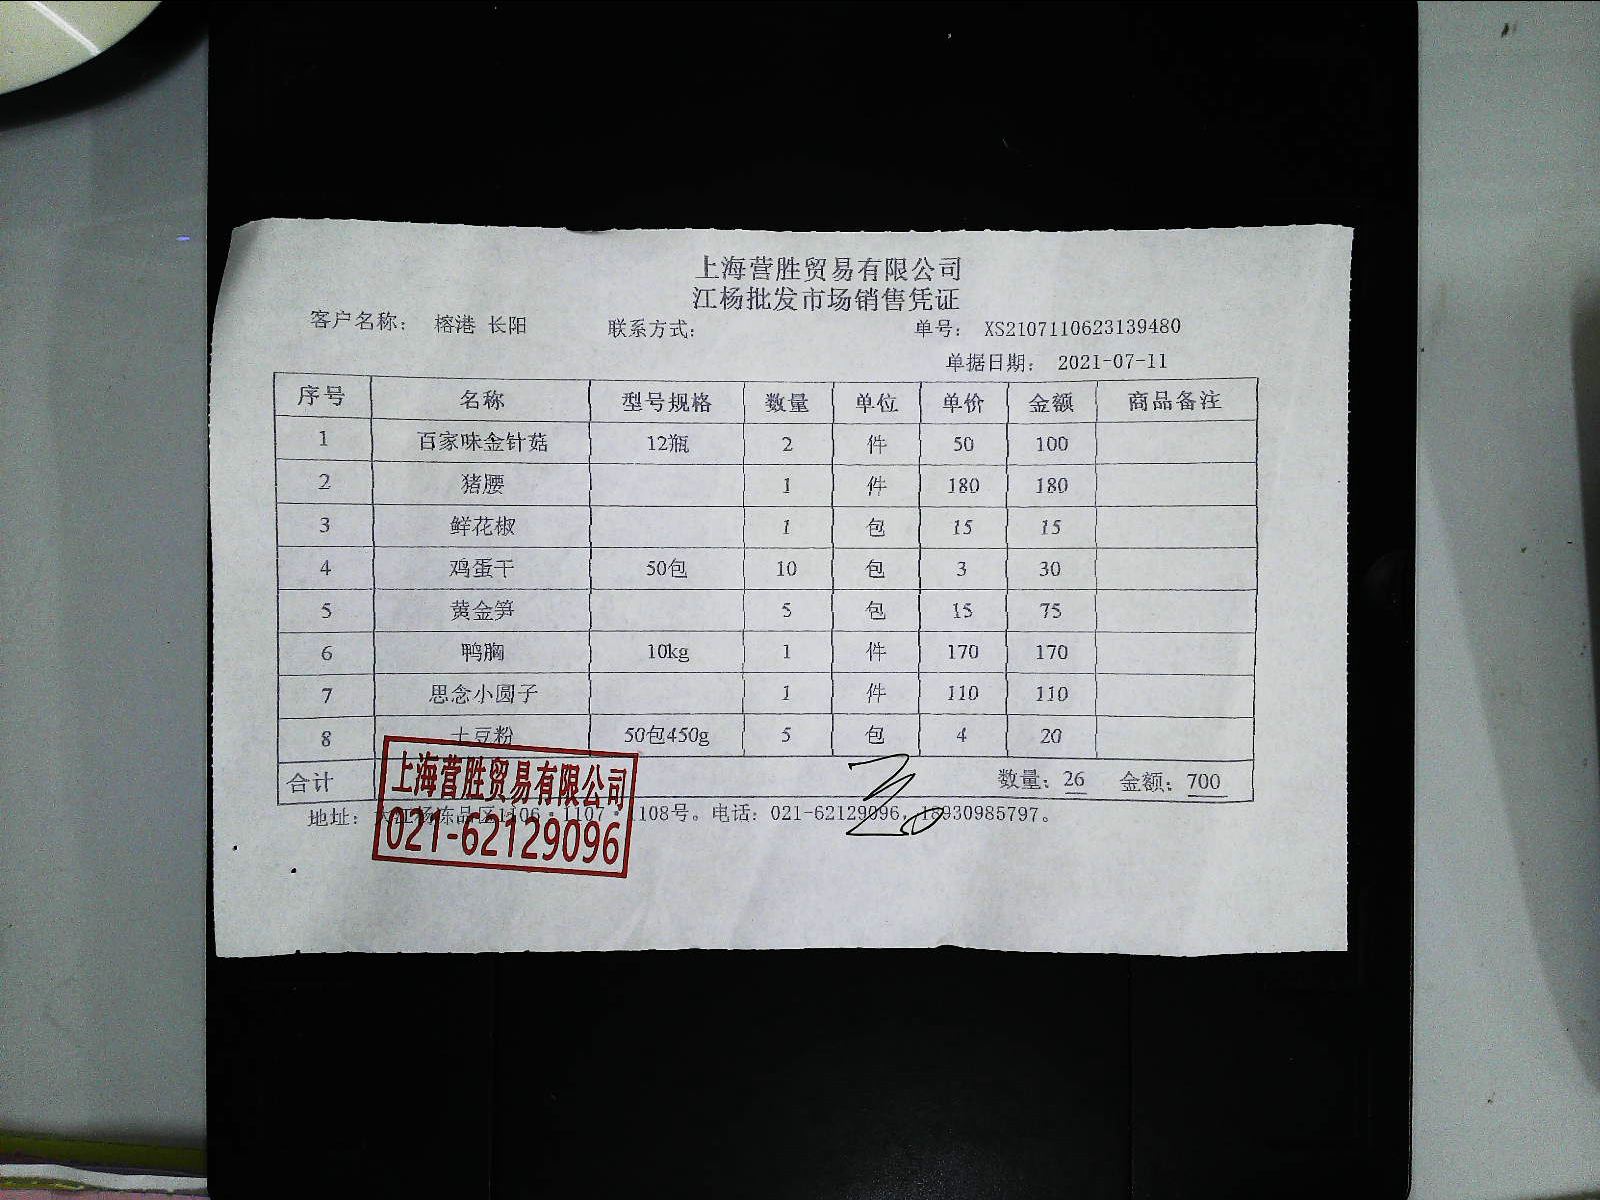 上海营胜贸易有限公司
江杨批发市场销售凭证
客户名称： 榕港 长阳 联系方式： 单号： XS2107110623139480
单据日期： 2021-07-11
序号 名称 型号规格 数量 单位 单价 金额 商品备注
1 百家味金针菇 12瓶 2 件 50 100
2 猪腰 1 件 180 180
3 鲜花椒 1 包 15 15
4 鸡蛋干 50包 10 包 3 30
5 黄金笋 5 包 15 75
6 鸭胸 10kg 1 件 170 170
7 思念小圆子 1 件 110 110
8 土豆粉 50包450g 5 包 4 20
合计 数量：26 金额：700
地址： 江杨冻品区1106·1107·1108号。电话：021-62129096，18930985797。
上海营胜贸易有限公司
021-62129096